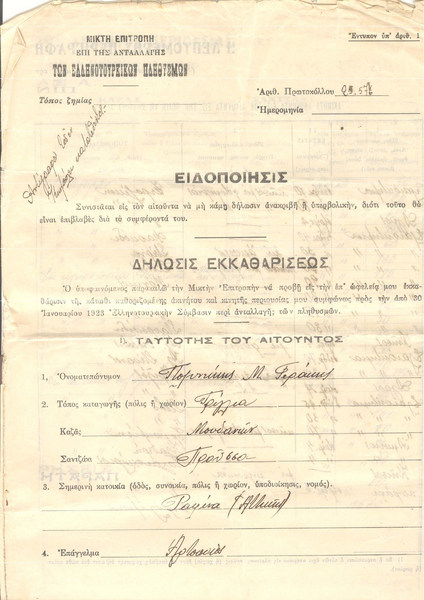 ΜΙΚΤΗ ΕΠΙΤΡΟΠΗ
ΕΠΙ ΤΗΣ ΑΝΤΑΛΛΑΓΗΣ
ΤΩΝ ΕΛΛΗΝΟΤΟΥΡΚΙΚΩΝ ΠΛΗΘΥΣΜΩΝ
Ἔντυπον ὑπ' ἀριθ. 1
Τόπος ζημίας
Ἀριθ. Πρωτοκόλλου
Ἡμερομηνία
ΕΙΔΟΠΟΙΗΣΙΣ
Συνιστᾶται εἰς τὸν αἰτοῦντα νὰ μὴ κάμῃ δήλωσιν ἀνακριβῆ ἢ ὑπερβολικήν, διότι τοῦτο θὰ
εἶναι ἐπιβλαβὲς διὰ τὰ συμφέροντά του.
ΔΗΛΩΣΙΣ ΕΚΚΑΘΑΡΙΣΕΩΣ
Ὁ ὑποφαινόμενος παρακαλῶ τὴν Μικτὴν Ἐπιτροπὴν νὰ προβῇ εἰς τὴν ἐπ' ὠφελείᾳ μου ἐκκα-
θάρισιν τῆς κάτωθι καθοριζομένης ἀκινήτου καὶ κινητῆς περιουσίας μου συμφώνως πρὸς τὴν ἀπὸ 30
Ἰανουαρίου 1923 Ἑλληνοτουρκικὴν Σύμβασιν περὶ ἀνταλλαγῆς τῶν πληθυσμῶν.
ΤΑΥΤΟΤΗΣ ΤΟΥ ΑΙΤΟΥΝΤΟΣ
1. Ὀνοματεπώνυμον Μ.
2. Τόπος καταγωγῆς (πόλις ἢ χωρίον) Τρίγλια
Καζᾶς Μουδανιῶν
Σαντζάκι Προῦσσα
3. Σημερινὴ κατοικία (ὁδός, συνοικία, πόλις ἢ χωρίον, ὑποδιοίκησις, νομός).
Ραφήνα (Ἀττικῆς)
4. Ἐπάγγελμα